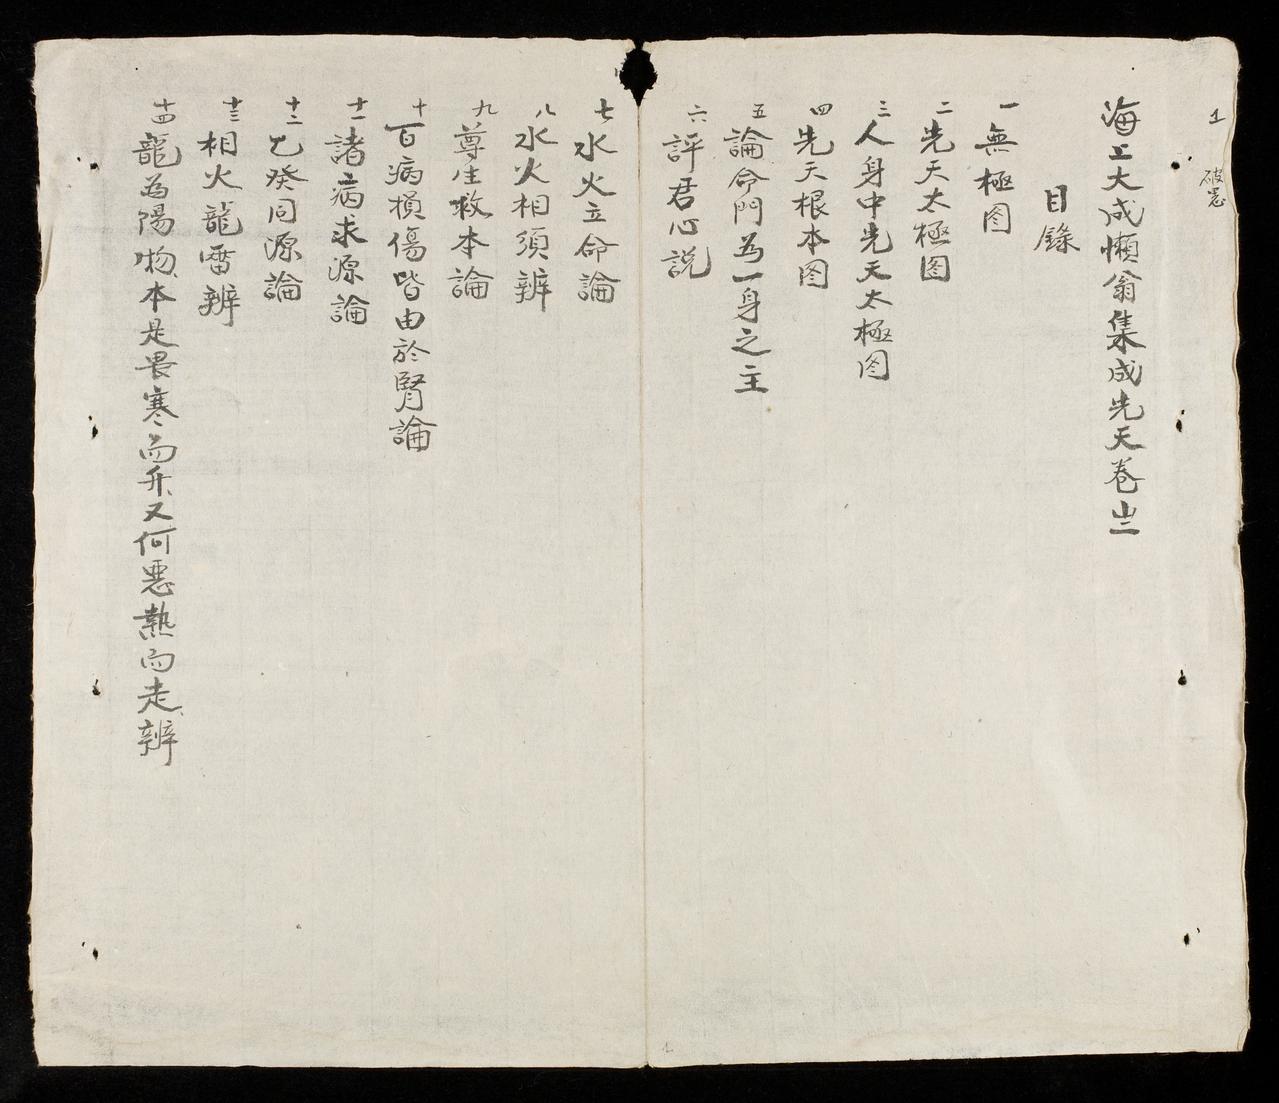 1 破悪
海上大成懶翁集成先天卷㐧二
目錄
一 無極图
二 先天太極图
三 人身中先天太極图
四 先天根本图
五 論命門為一身之主
六 評君心説
七 水火立命論
八 水火相須辨
九 尊生救本論
十 百病損傷皆由於腎論
十一 諸病求源論
十二 乙癸同源論
十三 相火龍雷辨
十四 龍為陽物、本是畏寒而升、又何惡熱而走、辨
1